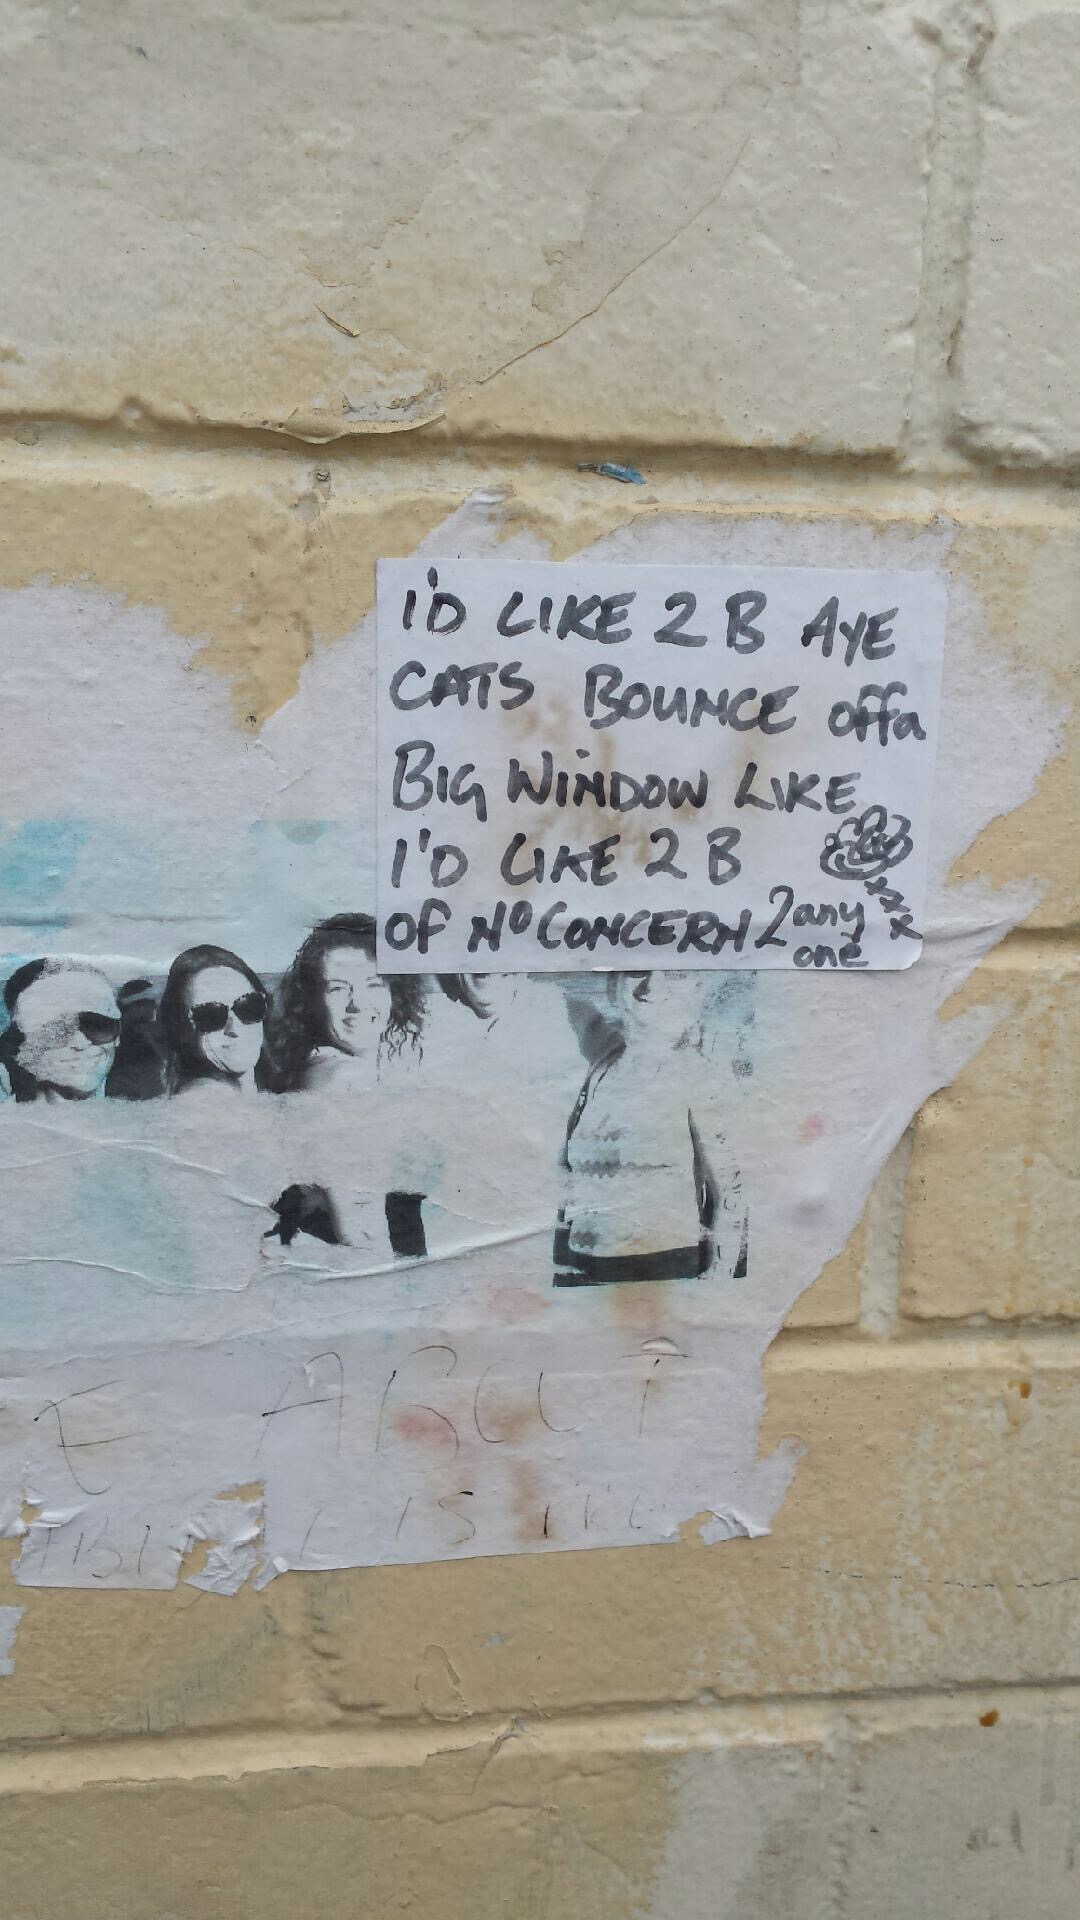 I'D LIKE 2 B AYE
CATS BOUNCE offa
BIG WINDOW LIKE
I'D LIKE 2 B
OF Nº CONCERN 2 any
one xxx
E ABOUT
IS